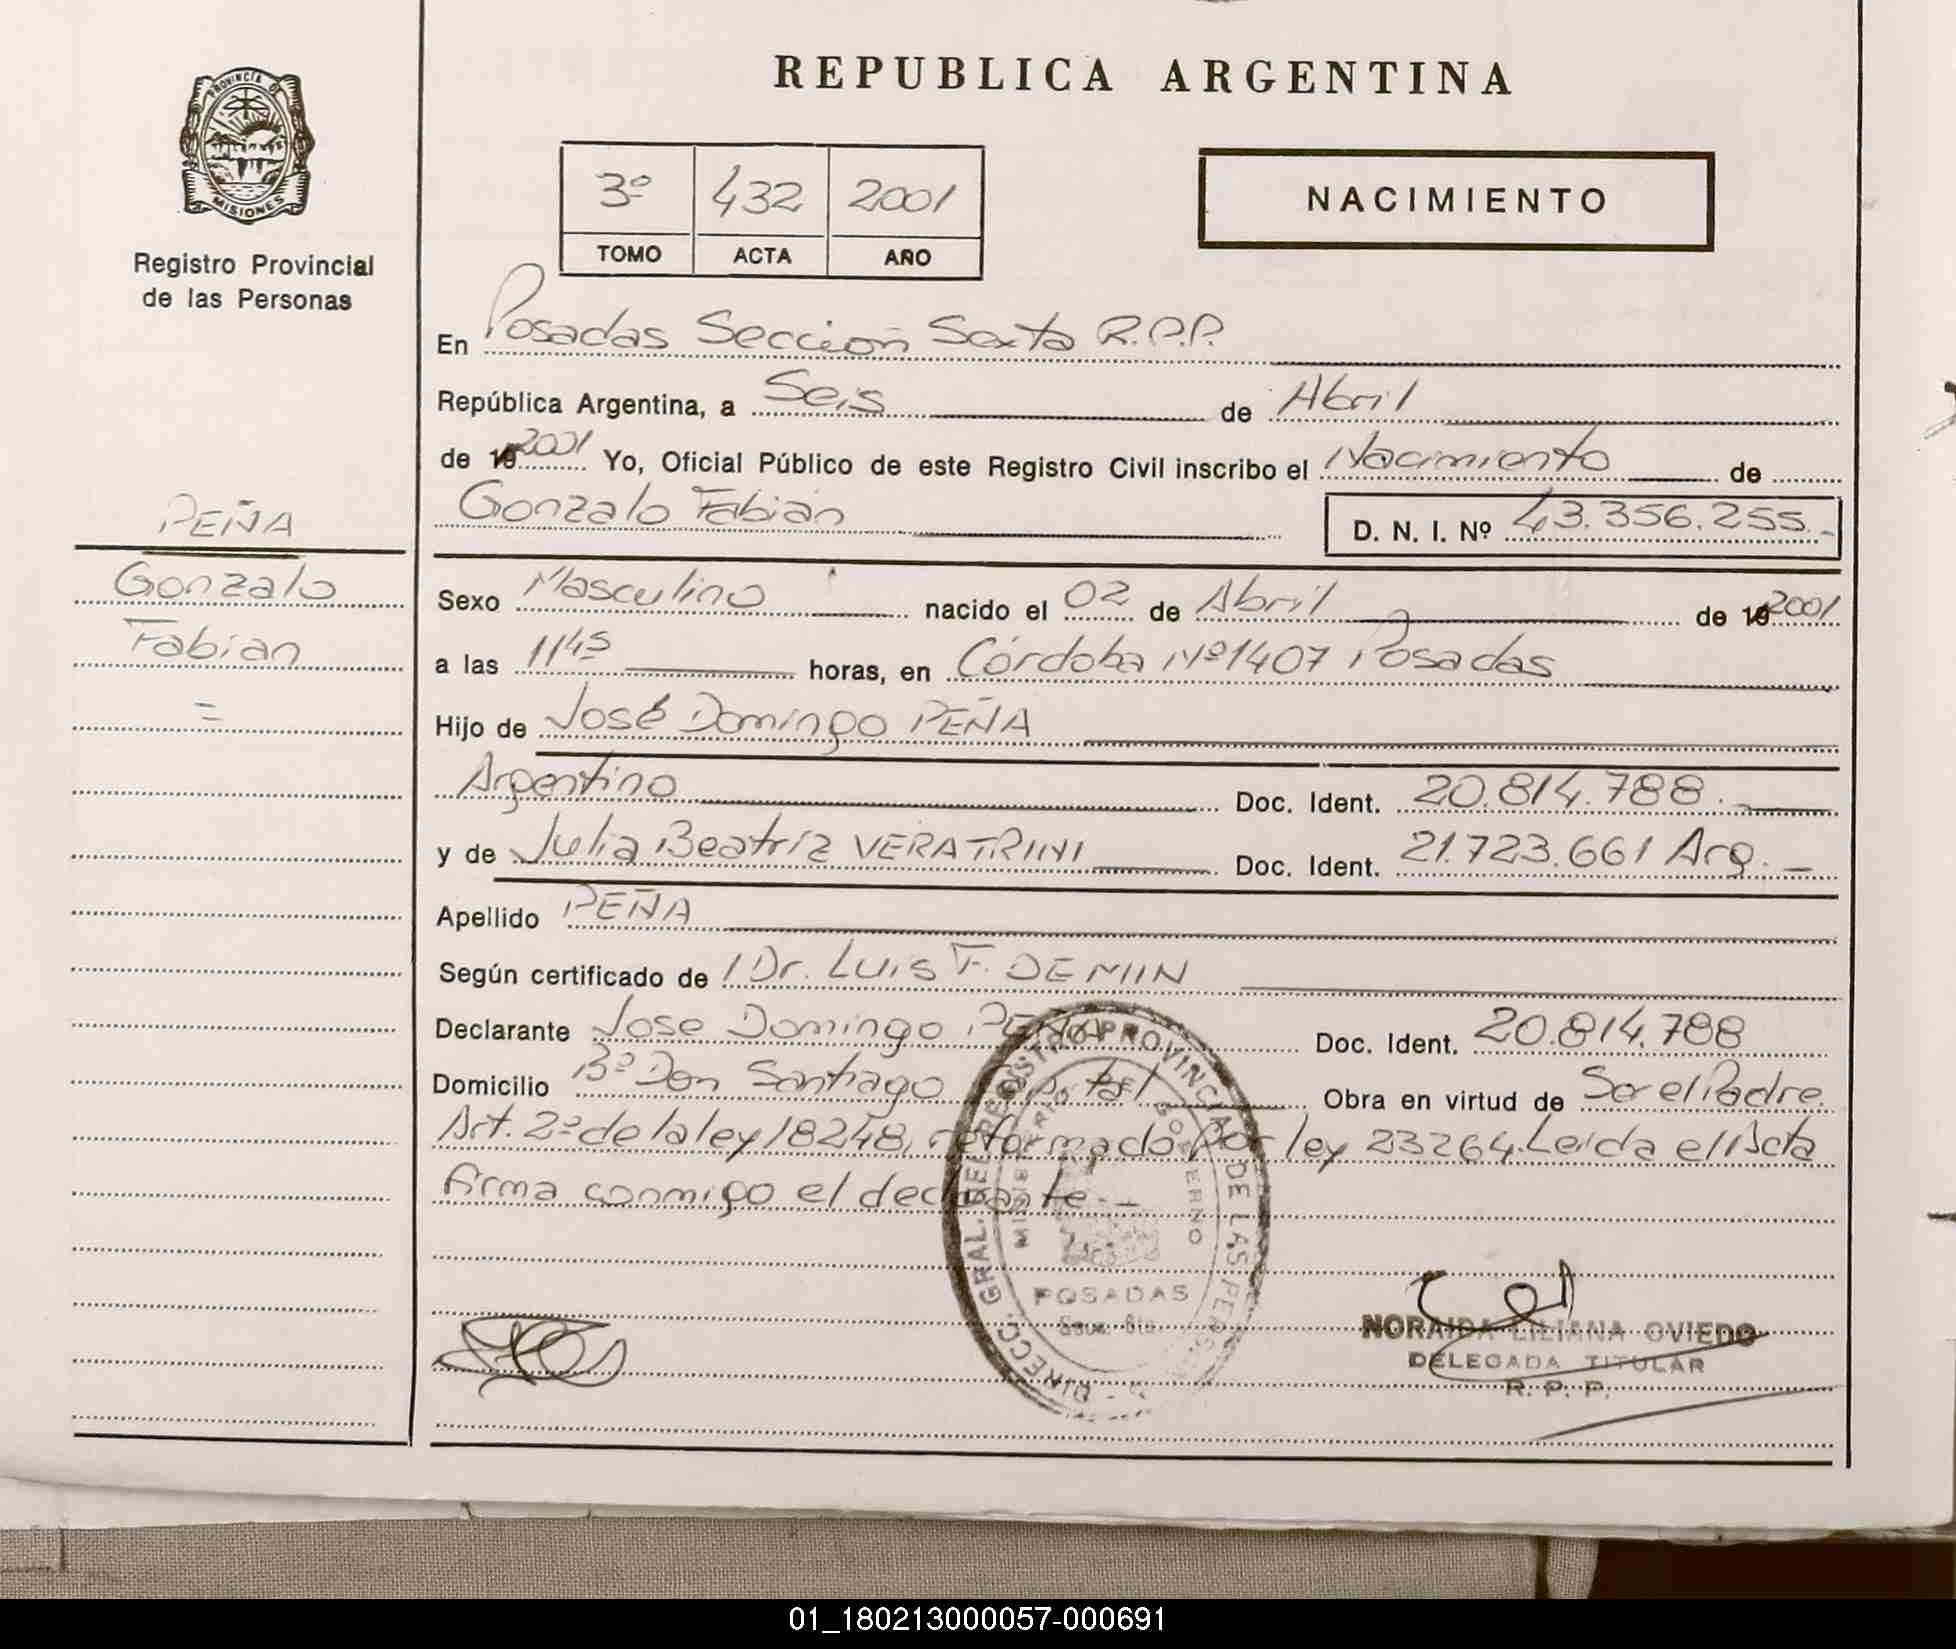 PROVINCIA DE
MISIONES
Registro Provincial
de las Personas
PEÑA
Gonzalo
Fabian
=
REPUBLICA ARGENTINA
3º 432 2001
TOMO ACTA AÑO
NACIMIENTO
En Posadas Sección Sexta R.P.P.
República Argentina, a Seis de Abril
de 19 2001 Yo, Oficial Público de este Registro Civil inscribo el Nacimiento de
Gonzalo Fabián D. N. I. Nº 43.356.255.-
Sexo Masculino nacido el 02 de Abril de 19 2001
a las 1145 horas, en Córdoba Nº 1407 Posadas
Hijo de José Domingo PEÑA
Argentino Doc. Ident. 20.814.788.-
y de Julia Beatríz VERATRINI Doc. Ident. 21.723.661 Arg. -
Apellido PEÑA
Según certificado de Dr. Luis F. DEMIIN
Declarante Jose Domingo PEÑA Doc. Ident. 20.814.788
Domicilio Bº Don Santiago Obra en virtud de Ser el Padre.
Art. 2º de la ley 18248, reformado por ley 23264. Leida el Acta
firma conmigo el declarante. -
DIRECC. GRAL. DEL REGISTRO PROVINCIAL DE LAS PERSONAS
MINISTERIO DE GOBIERNO
POSADAS
NORAIDA LILIANA OVIEDO
DELEGADA TITULAR
R. P. P.
01_180213000057-000691